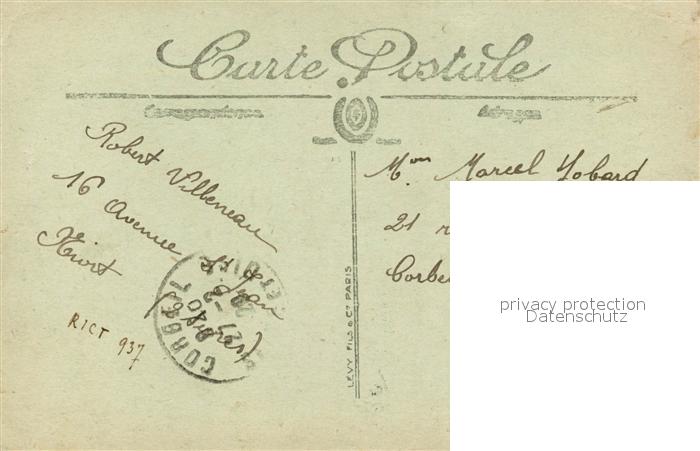 Carte Postale
Correspondance
Adresse
Robert Villeneau
16 Avenue St Jean
Niort
(D. Sèvres)
RICT 937
Mon Marcel Lobard
21 r
Corbe
LEVY FILS & Cie PARIS
CORBEIL
privacy protection
Datenschutz